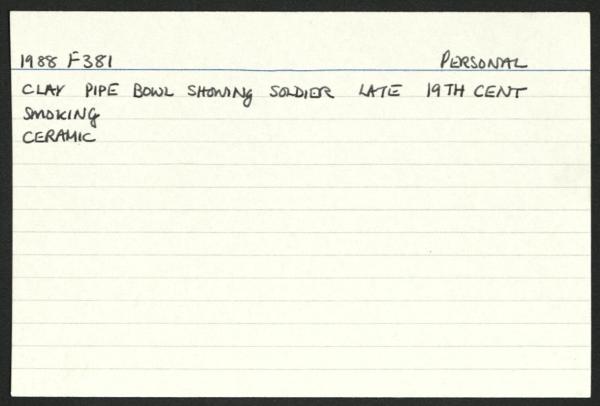 1988 F381 PERSONAL
CLAY PIPE BOWL SHOWING SOLDIER LATE 19TH CENT
SMOKING
CERAMIC